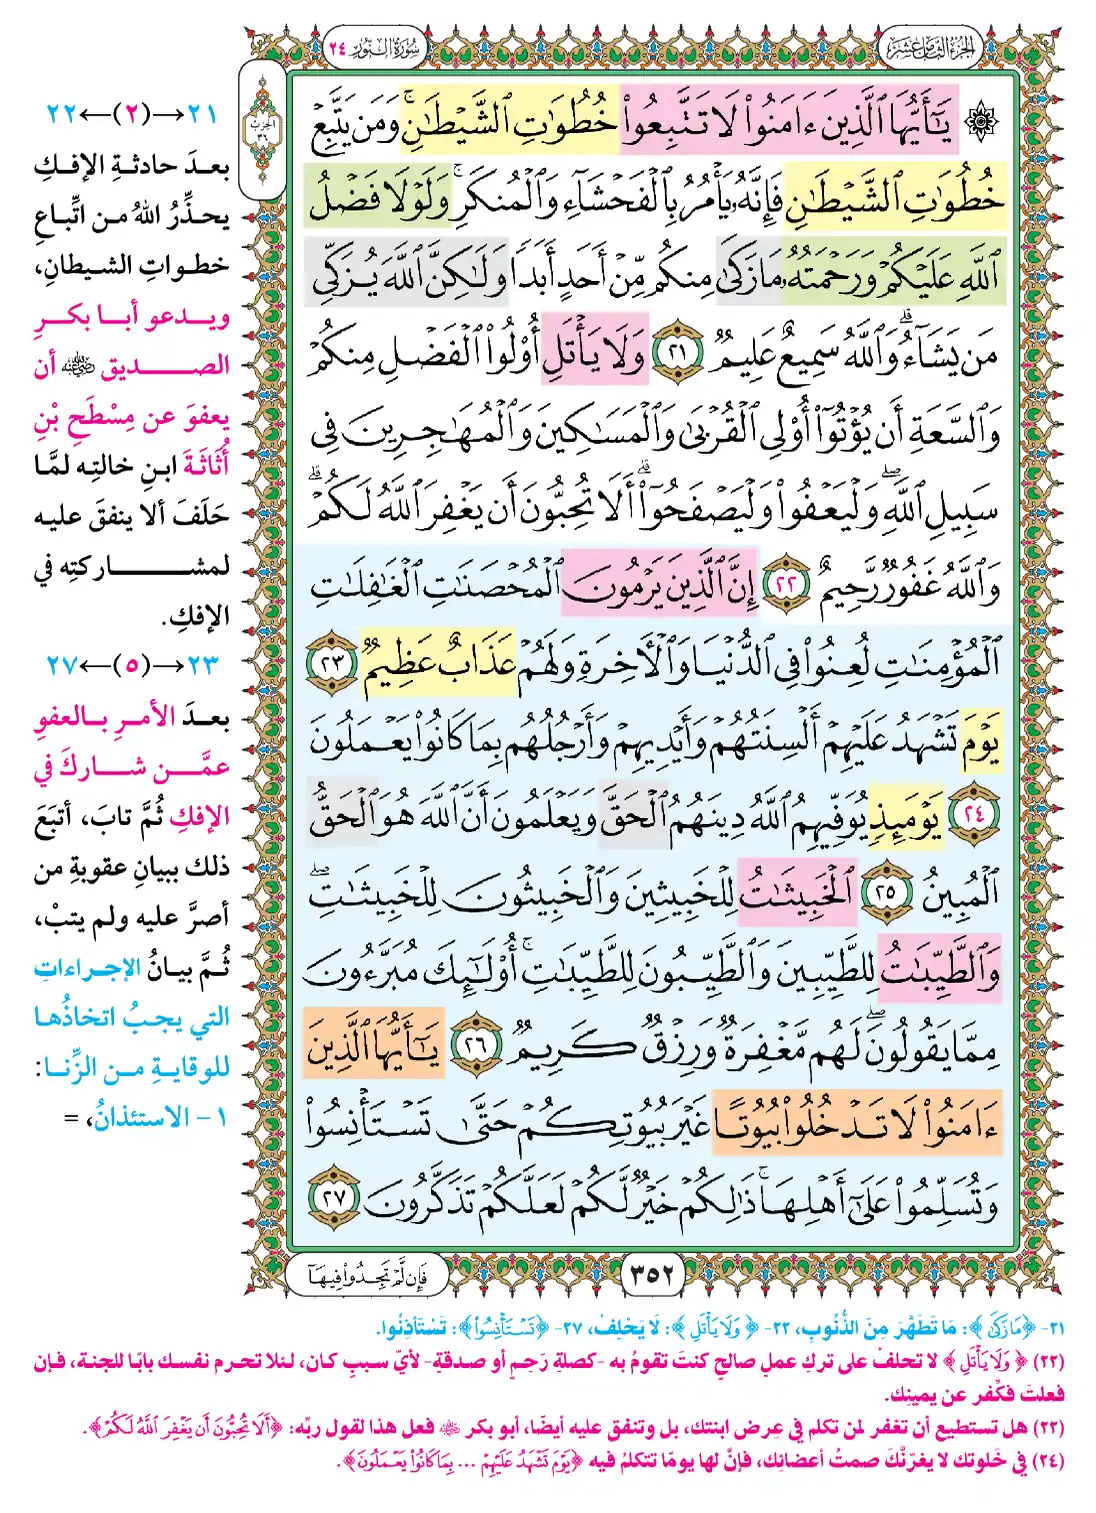 الجزء الثامن عشر
سورة النور ٢٤
الحزب ٣٦
۞ يَٰٓأَيُّهَا ٱلَّذِينَ ءَامَنُوا۟ لَا تَتَّبِعُوا۟ خُطُوَٰتِ ٱلشَّيْطَٰنِ ۚ وَمَن يَتَّبِعْ
خُطُوَٰتِ ٱلشَّيْطَٰنِ فَإِنَّهُۥ يَأْمُرُ بِٱلْفَحْشَآءِ وَٱلْمُنكَرِ ۚ وَلَوْلَا فَضْلُ
ٱللَّهِ عَلَيْكُمْ وَرَحْمَتُهُۥ مَا زَكَىٰ مِنكُم مِّنْ أَحَدٍ أَبَدًا وَلَٰكِنَّ ٱللَّهَ يُزَكِّى
مَن يَشَآءُ ۗ وَٱللَّهُ سَمِيعٌ عَلِيمٌ ٢١ وَلَا يَأْتَلِ أُو۟لُوا۟ ٱلْفَضْلِ مِنكُمْ
وَٱلسَّعَةِ أَن يُؤْتُوٓا۟ أُو۟لِى ٱلْقُرْبَىٰ وَٱلْمَسَٰكِينَ وَٱلْمُهَٰجِرِينَ فِى
سَبِيلِ ٱللَّهِ ۖ وَلْيَعْفُوا۟ وَلْيَصْفَحُوٓا۟ ۗ أَلَا تُحِبُّونَ أَن يَغْفِرَ ٱللَّهُ لَكُمْ ۗ
وَٱللَّهُ غَفُورٌ رَّحِيمٌ ٢٢ إِنَّ ٱلَّذِينَ يَرْمُونَ ٱلْمُحْصَنَٰتِ ٱلْغَٰفِلَٰتِ
ٱلْمُؤْمِنَٰتِ لُعِنُوا۟ فِى ٱلدُّنْيَا وَٱلْءَاخِرَةِ وَلَهُمْ عَذَابٌ عَظِيمٌ ٢٣
يَوْمَ تَشْهَدُ عَلَيْهِمْ أَلْسِنَتُهُمْ وَأَيْدِيهِمْ وَأَرْجُلُهُم بِمَا كَانُوا۟ يَعْمَلُونَ
٢٤ يَوْمَئِذٍ يُوَفِّيهِمُ ٱللَّهُ دِينَهُمُ ٱلْحَقَّ وَيَعْلَمُونَ أَنَّ ٱللَّهَ هُوَ ٱلْحَقُّ
ٱلْمُبِينُ ٢٥ ٱلْخَبِيثَٰتُ لِلْخَبِيثِينَ وَٱلْخَبِيثُونَ لِلْخَبِيثَٰتِ ۖ
وَٱلطَّيِّبَٰتُ لِلطَّيِّبِينَ وَٱلطَّيِّبُونَ لِلطَّيِّبَٰتِ ۚ أُو۟لَٰٓئِكَ مُبَرَّءُونَ
مِمَّا يَقُولُونَ ۖ لَهُم مَّغْفِرَةٌ وَرِزْقٌ كَرِيمٌ ٢٦ يَٰٓأَيُّهَا ٱلَّذِينَ
ءَامَنُوا۟ لَا تَدْخُلُوا۟ بُيُوتًا غَيْرَ بُيُوتِكُمْ حَتَّىٰ تَسْتَأْنِسُوا۟
وَتُسَلِّمُوا۟ عَلَىٰٓ أَهْلِهَا ۚ ذَٰلِكُمْ خَيْرٌ لَّكُمْ لَعَلَّكُمْ تَذَكَّرُونَ ٢٧
٣٥٢
فَإِن لَّمْ تَجِدُوا۟ فِيهَآ
٢١→(٢)←٢٢
بعدَ حادثةِ الإفكِ
يحذِّرُ اللهُ من اتِّباعِ
خطواتِ الشيطانِ،
ويدعو أبا بكرٍ
الصديق ﵁ أن
يعفوَ عن مِسْطَحِ بْنِ
أُثَاثَةَ ابنِ خالتِه لمَّا
حَلَفَ ألا ينفقَ عليه
لمشاركتِه في
الإفكِ.
٢٣→(٥)←٢٧
بعدَ الأمرِ بالعفوِ
عمَّن شاركَ في
الإفكِ ثُمَّ تابَ، أتبَعَ
ذلك ببيانِ عقوبةِ من
أصرَّ عليه ولم يتبْ،
ثُمَّ بيانُ الإجراءاتِ
التي يجبُ اتخاذُها
للوقايةِ من الزِّنا:
١- الاستئذانُ، =
٢١- ﴿مَا زَكَىٰ﴾: مَا تَطَهَّرَ مِنَ الذُّنُوبِ، ٢٢- ﴿وَلَا يَأْتَلِ﴾: لَا يَحْلِفْ، ٢٧- ﴿تَسْتَأْنِسُوا۟﴾: تَسْتَأْذِنُوا.
(٢٢) ﴿وَلَا يَأْتَلِ﴾ لا تحلفْ على تركِ عملٍ صالحٍ كنتَ تقومُ به -كصلةِ رَحِمٍ أو صدقةٍ- لأيِّ سببٍ كان، لئلا تحرم نفسك بابًا للجنة، فإن
فعلتَ فكِّفر عن يمينِك.
(٢٢) هل تستطيع أن تغفر لمن تكلم في عِرض ابنتك، بل وتنفق عليه أيضًا، أبو بكر ﵁ فعل هذا لقول ربِّه: ﴿أَلَا تُحِبُّونَ أَن يَغْفِرَ ٱللَّهُ لَكُمْ﴾.
(٢٤) في خَلوتك لا يغرّنَّكَ صمتُ أعضائِك، فإنَّ لها يومًا تتكلمُ فيه ﴿يَوْمَ تَشْهَدُ عَلَيْهِمْ ... بِمَا كَانُوا۟ يَعْمَلُونَ﴾.